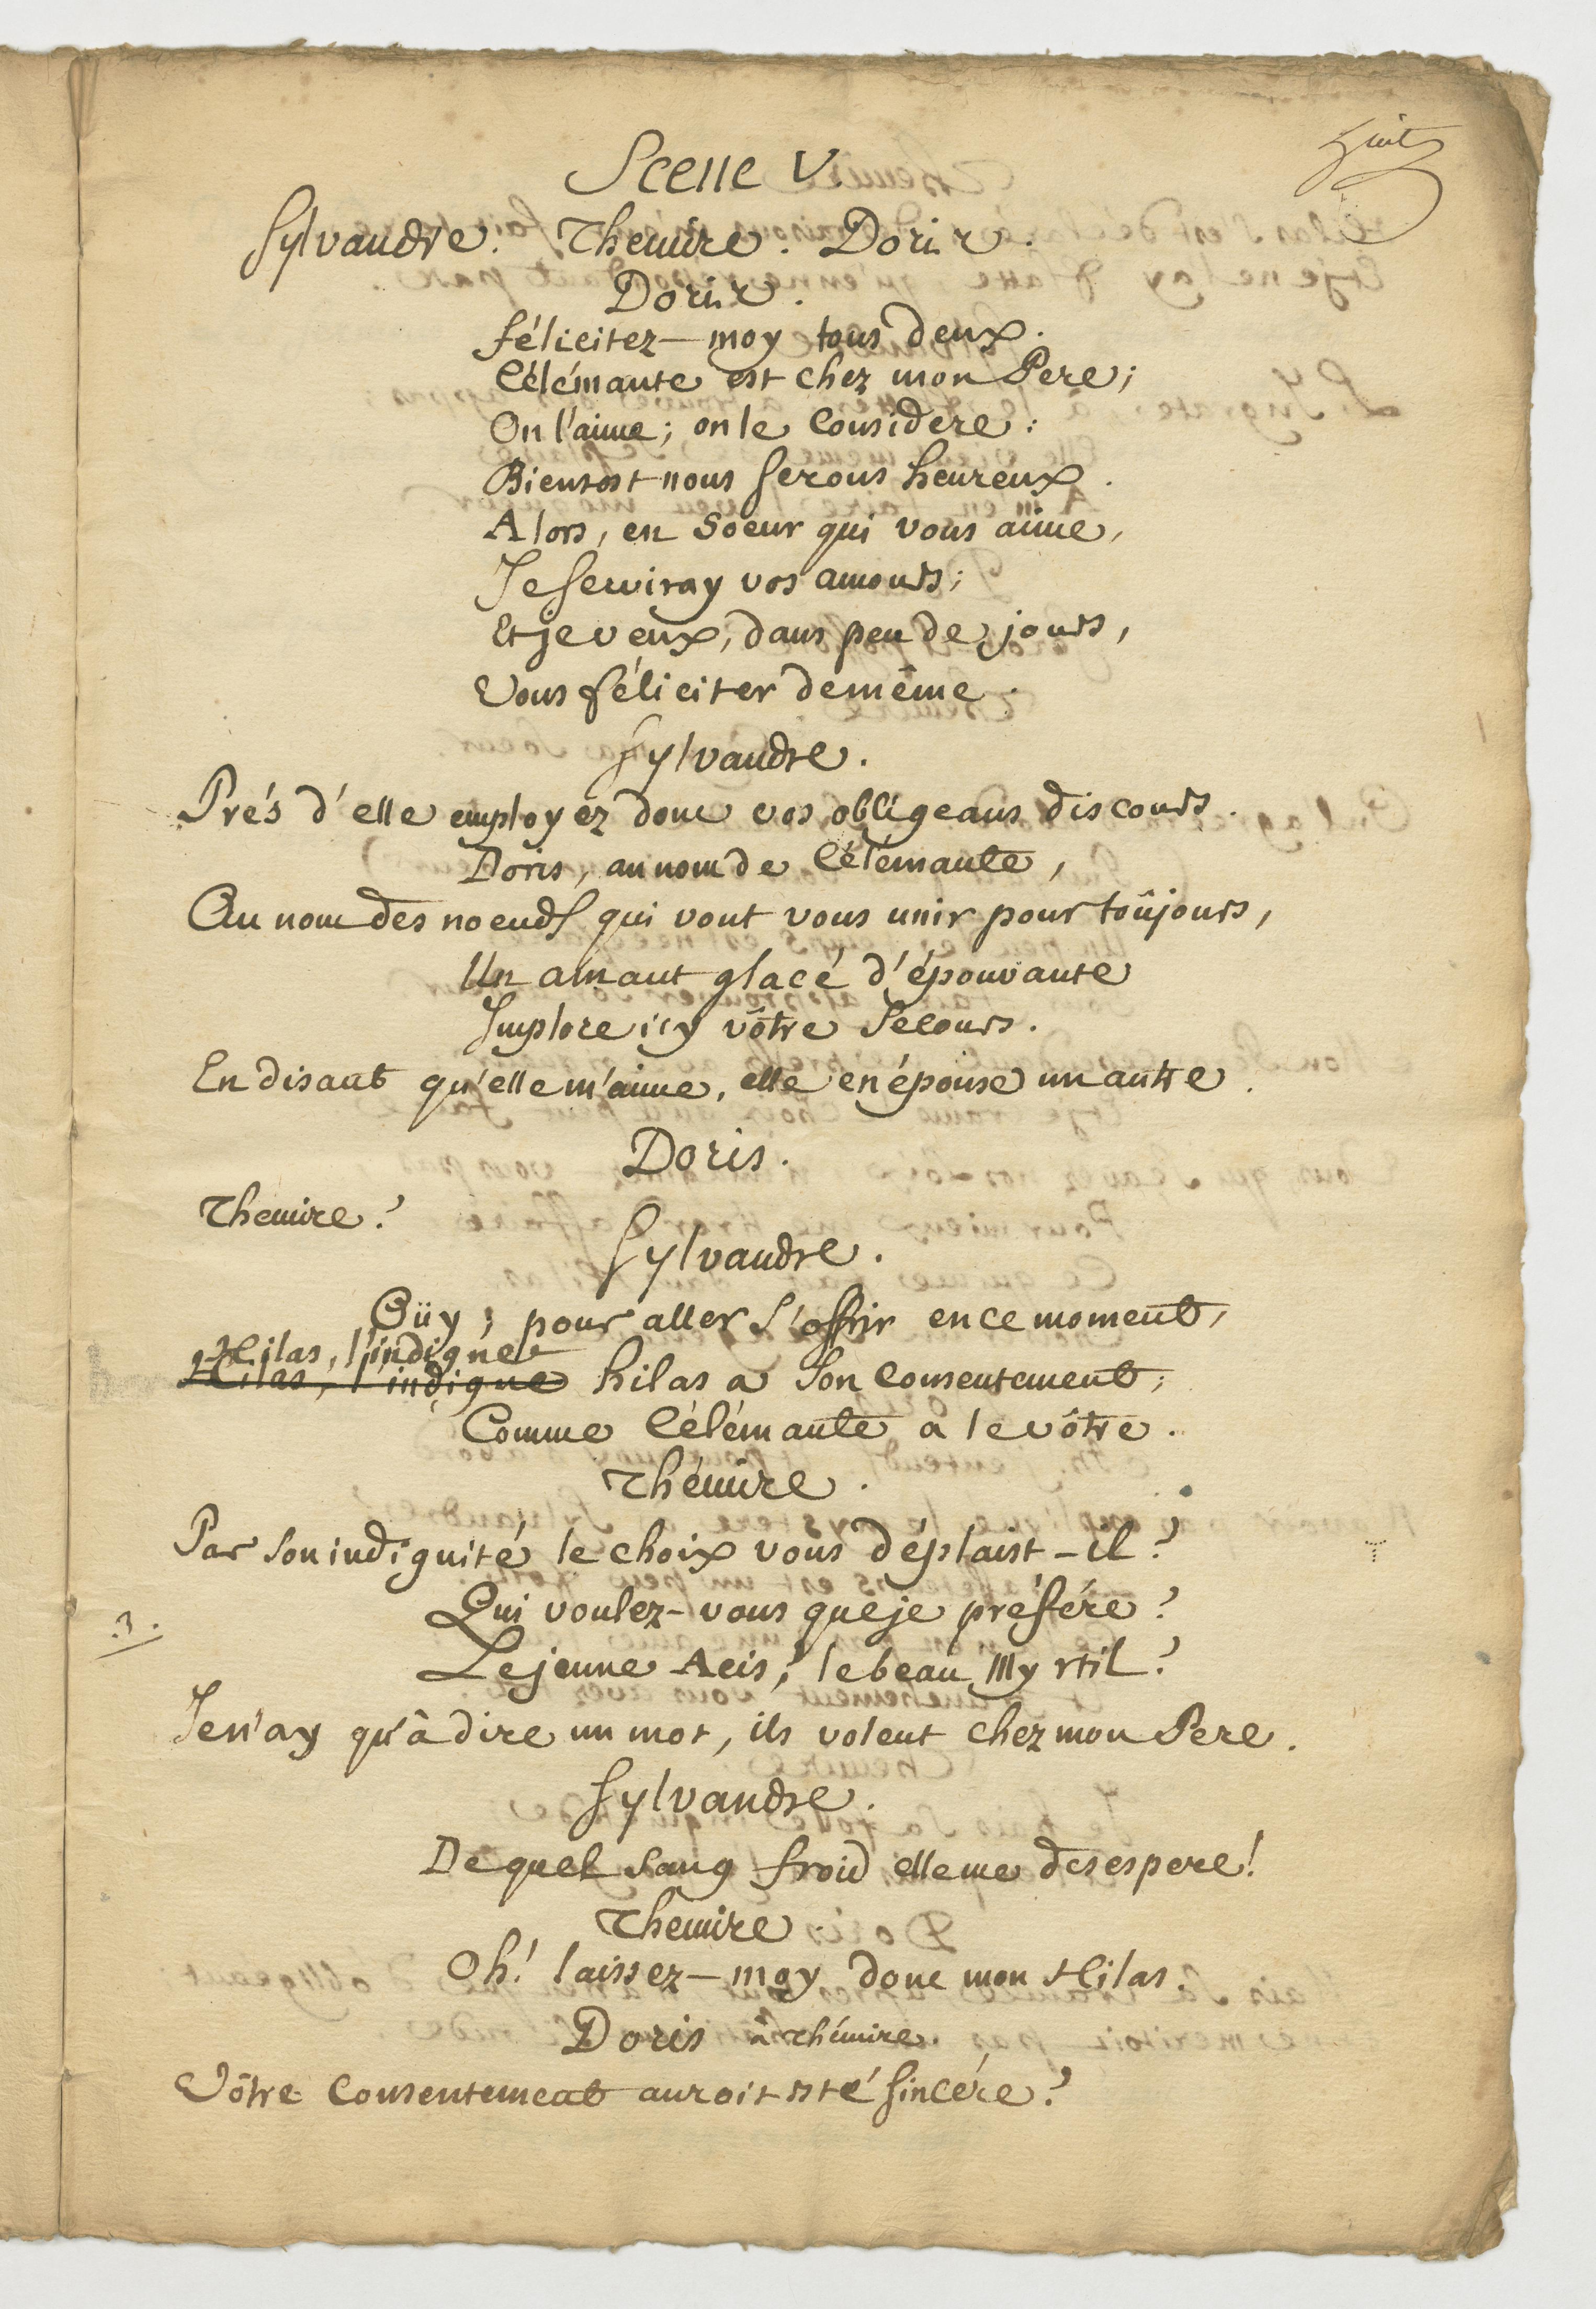 huit
Scene V.
Sylvandre. Themire. Doris.
Doris.
félicitez-moy tous deux.
Célémante est chez mon Pere;
On l'aime; on le Considere:
Bientost nous serons heureux.
Alors, en soeur qui vous aime,
Je serviray vos amours;
Et je veux, dans peu de jours,
Vous féliciter de même.
Sylvandre.
Prés d'elle employez donc vos obligeans discours.
Doris, au nom de Célémante,
Au nom des noeuds qui vont vous unir pour toûjours,
Un amant glacé d'épouvante
Implore icy vôtre secours.
En disant qu'elle m'aime, elle en épouse un autre.
Doris.
Themire?
Sylvandre.
Oüy; pour aller s'offrir en ce moment,
Hilas, l'indigne
Hilas, l'indigne hilas a son consentement;
Comme Célémante a le vôtre.
Thémire.
Par son indignité le choix vous déplaist-il?
Qui voulez-vous que je préfére?
.3.
Le jeune Acis? le beau Myrtil?
Je n'ay qu'à dire un mot, ils volent chez mon Pere.
Sylvandre.
De quel sang froid elle me desespere!
Themire.
Oh! laissez-moy donc mon Hilas.
Doris à Thémire.
Vôtre Consentement auroit esté sincére?